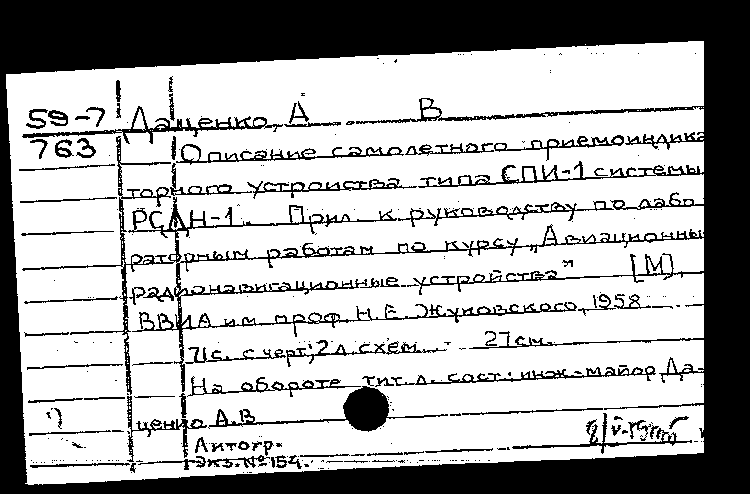 59-7 Даценко, А В
763 Описание самолетного приемоиндика
торного устройства типа СПИ-1 системы
РСДН-1. Прил. к руководству по лабо
раторным работам по курсу „Авиационны
радионавигационные устройства" [М],
ВВИА им. проф. Н.Е. Жуковского, 1958
71с. с черт; 2 л. схем. 27см.
На обороте тит. л. сост: инж-майор Да-
ценко А.В
Литогр.
Экз. № 154.